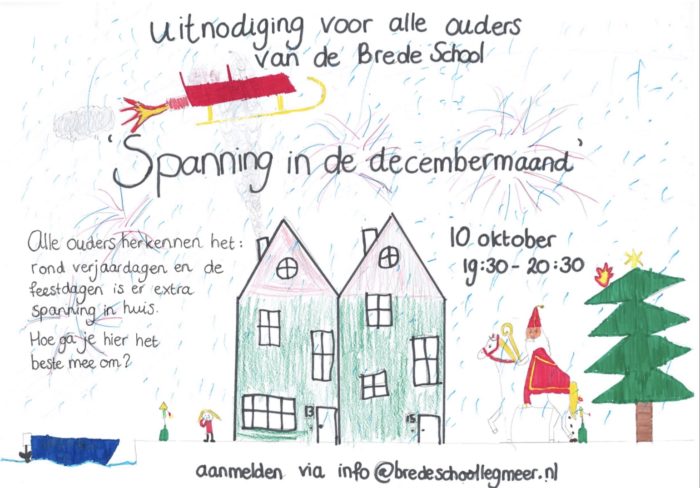 uitnodiging voor alle ouders
van de Brede School
'Spanning in de decembermaand'
Alle ouders herkennen het:
rond verjaardagen en de
feestdagen is er extra
spanning in huis.
Hoe ga je hier het
beste mee om?
10 oktober
19:30 - 20:30
13
15
aanmelden via info@bredeschoollegmeer.nl